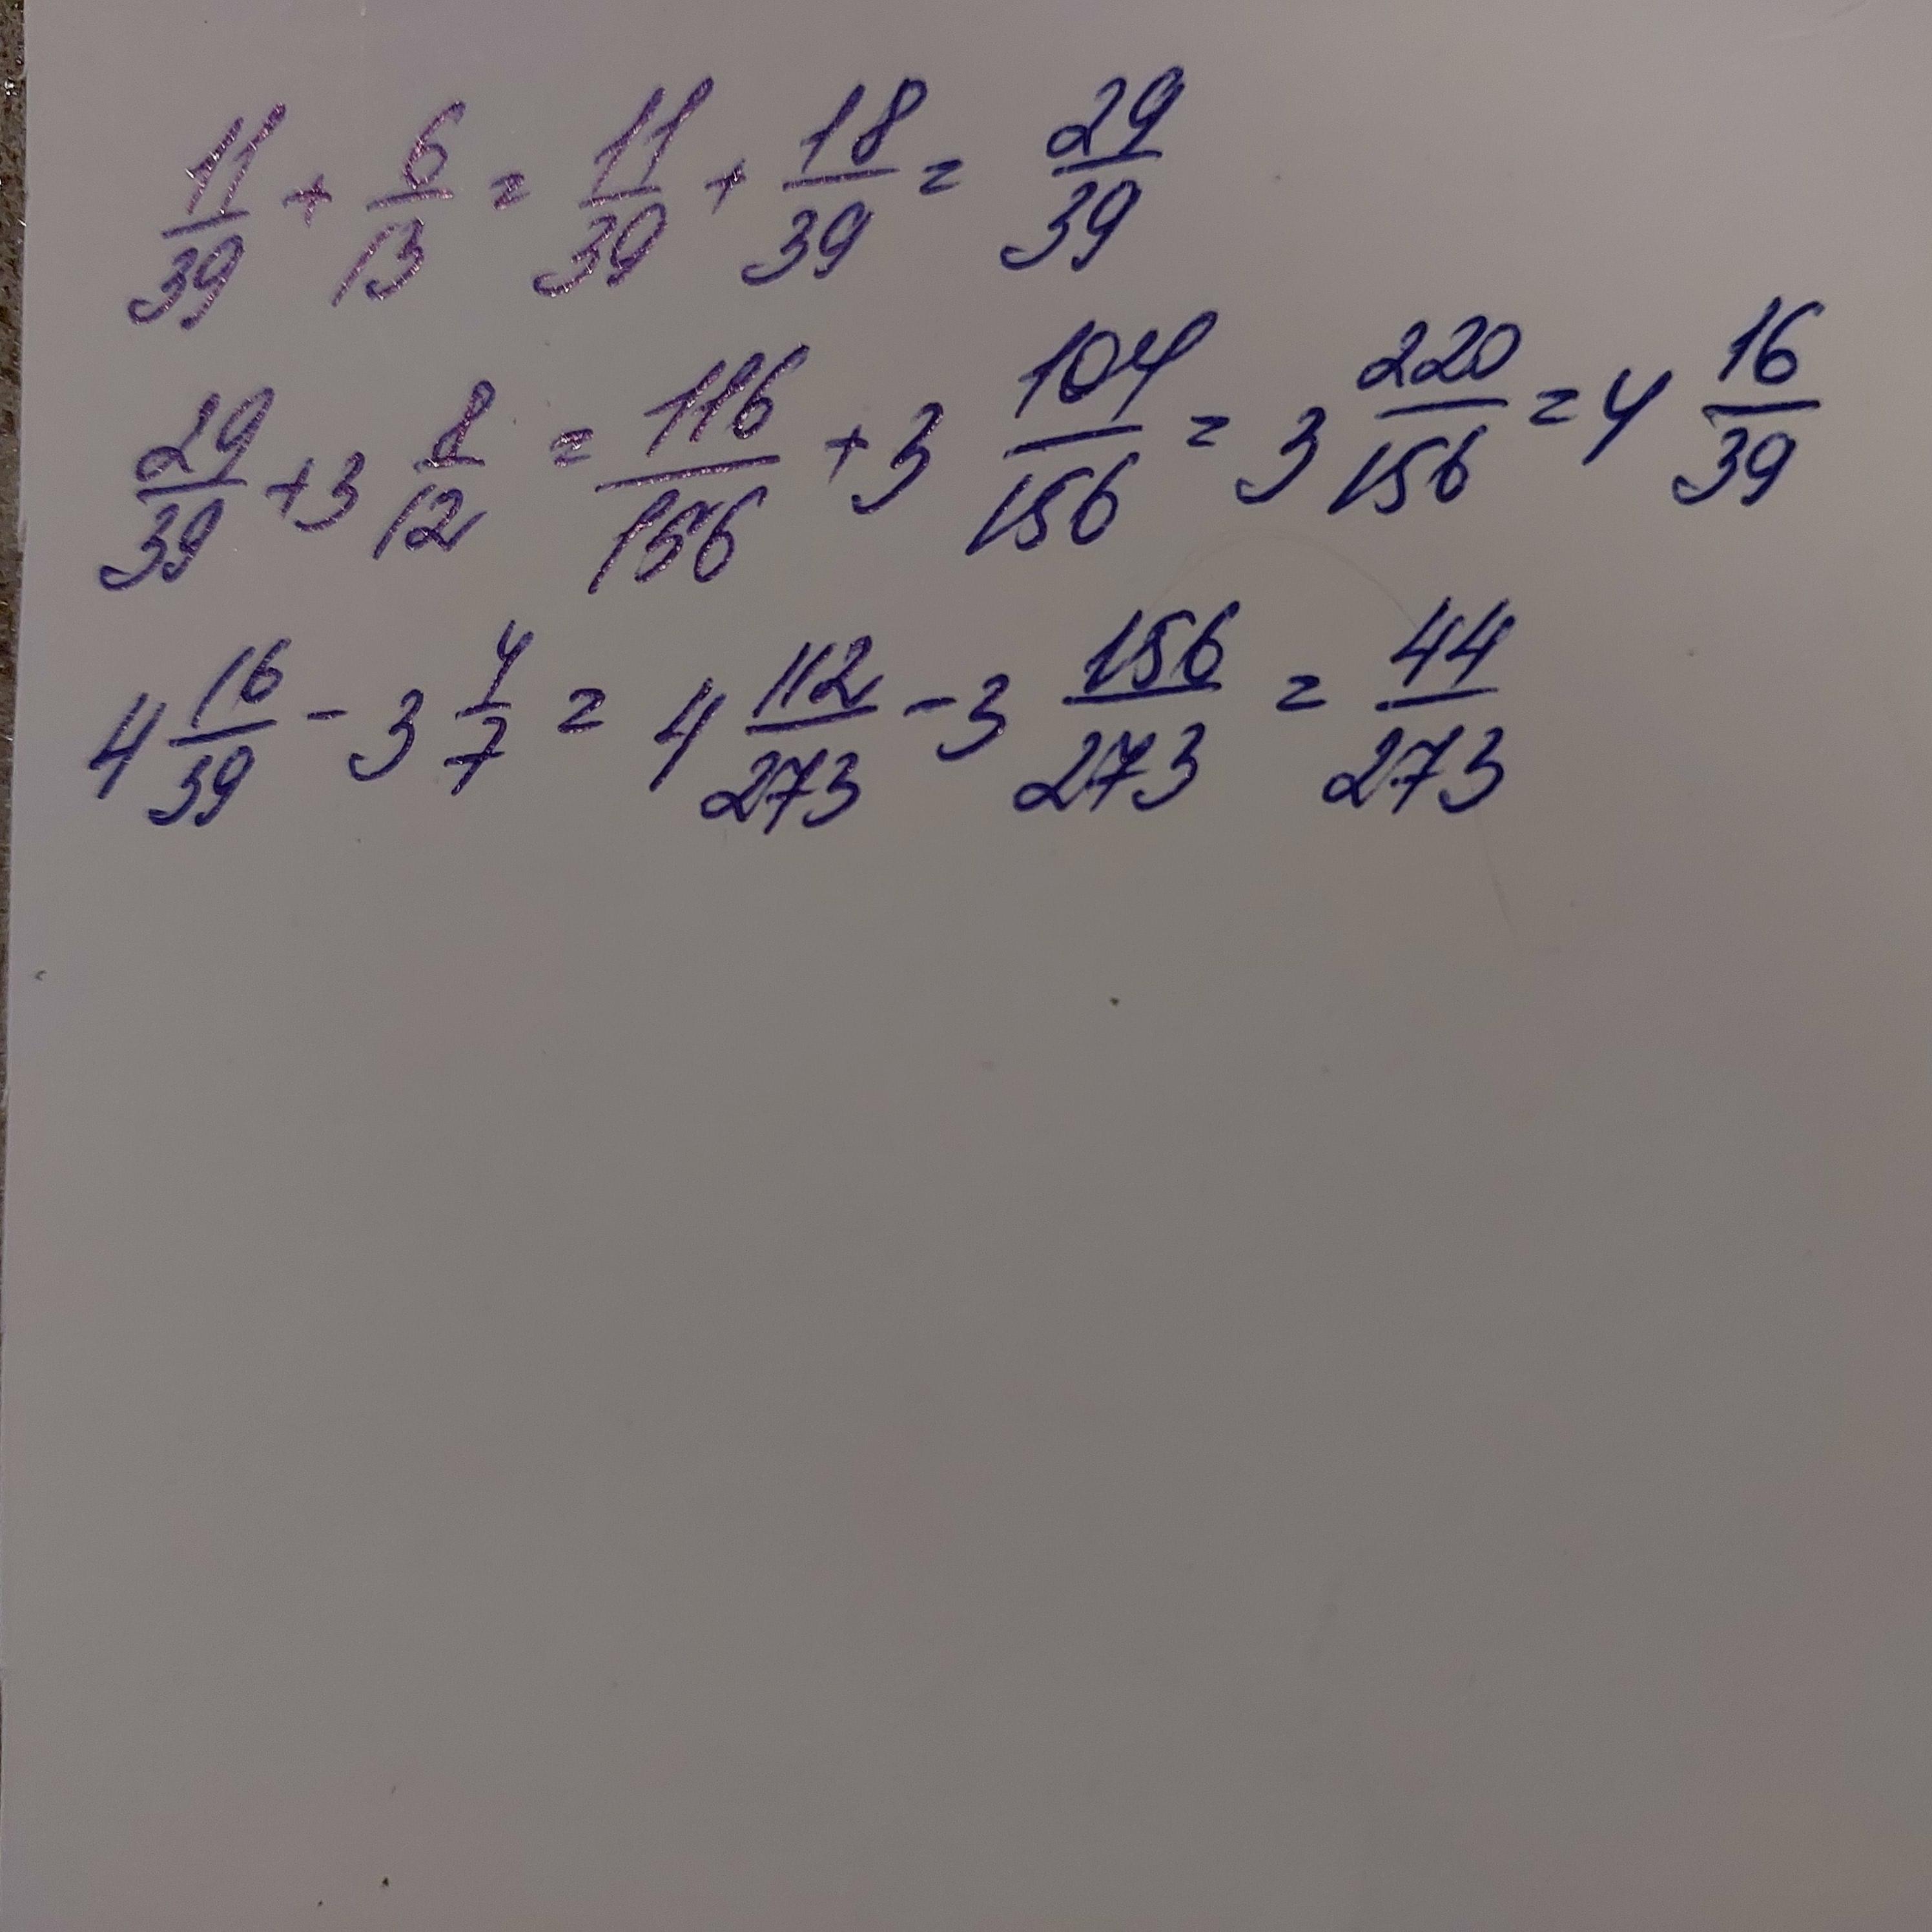 11/39 + 6/13 = 11/39 + 18/39 = 29/39
29/39 + 3 8/12 = 116/156 + 3 104/156 = 3 220/156 = 4 16/39
4 16/39 - 3 4/7 = 4 112/273 - 3 156/273 = 44/273